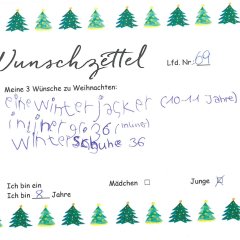 Wunschzettel
Lfd. Nr.: 69
Meine 3 Wünsche zu Weihnachten:
eine winter jacker (10-11 Jahre)
inliner grö 36 (inliner)
Winterschuhe 36
Ich bin ein Mädchen ☐ Junge ☒
Ich bin 8 Jahre